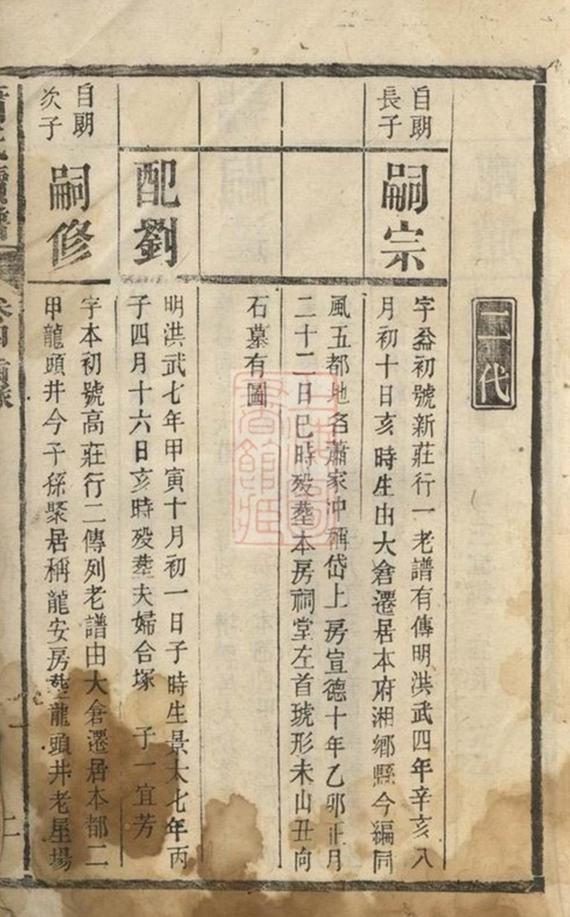 二代
自明長子
嗣宗
字益初號新莊行一老譜有傳明洪武四年辛亥八
月初十日亥時生由大倉遷居本府湘鄉縣今編同
風五都地名蕭家冲稱岱上房宣德十年乙卯正月
二十二日巳時歿塟本房祠堂左首琥形未山丑向
石墓有圖
配劉
明洪武七年甲寅十月初一日子時生景太七年丙
子四月十六日亥時歿塟夫婦合塚 子一宜芳
自明次子
嗣修
字本初號高莊行二傳列老譜由大倉遷居本都二
甲龍頭井今子孫聚居稱龍安房塟龍頭井老屋場
卷四
二